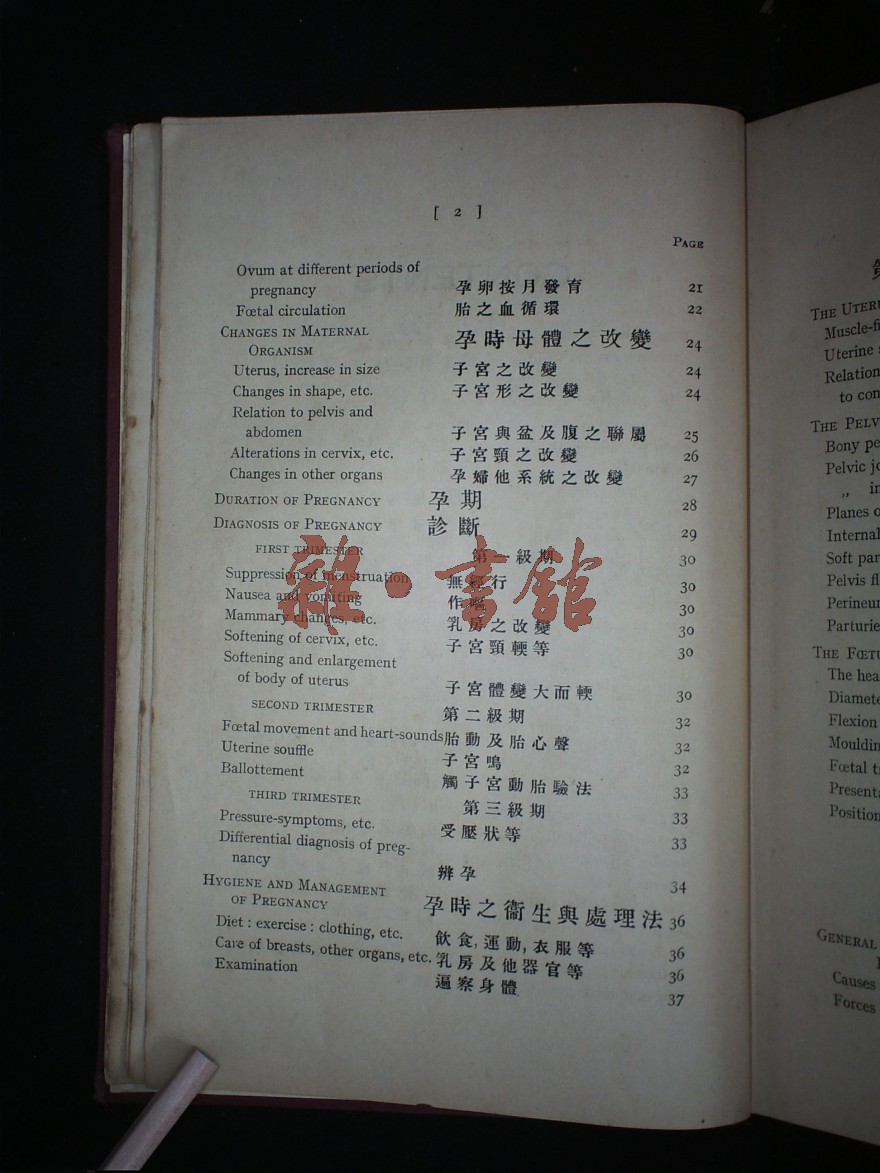 [ 2 ]
PAGE
Ovum at different periods of
pregnancy 孕卵按月發育 21
Fœtal circulation 胎之血循環 22
CHANGES IN MATERNAL
ORGANISM 孕時母體之改變 24
Uterus, increase in size 子宮之改變 24
Changes in shape, etc. 子宮形之改變 24
Relation to pelvis and
abdomen 子宮與盆及腹之聯屬 25
Alterations in cervix, etc. 子宮頸之改變 26
Changes in other organs 孕婦他系統之改變 27
DURATION OF PREGNANCY 孕期 28
DIAGNOSIS OF PREGNANCY 診斷 29
FIRST TRIMESTER 第一級期 30
Suppression of menstruation 無經行 30
Nausea and vomiting 作嘔 30
Mammary changes, etc. 乳房之改變 30
Softening of cervix, etc. 子宮頸輭等 30
Softening and enlargement
of body of uterus 子宮體變大而輭 30
SECOND TRIMESTER 第二級期 32
Fœtal movement and heart-sounds 胎動及胎心聲 32
Uterine souffle 子宮鳴 32
Ballottement 觸子宮動胎驗法 33
THIRD TRIMESTER 第三級期 33
Pressure-symptoms, etc. 受壓狀等 33
Differential diagnosis of preg-
nancy 辨孕 34
HYGIENE AND MANAGEMENT
OF PREGNANCY 孕時之衞生與處理法 36
Diet : exercise : clothing, etc. 飲食, 運動, 衣服等 36
Care of breasts, other organs, etc. 乳房及他器官等 36
Examination 遍察身體 37
雜·書館
THE UTERU
Muscle-fi
Uterine
Relation
to con
THE PELV
Bony pe
Pelvic jo
,, in
Planes o
Internal
Soft par
Pelvis fl
Perineum
Parturie
THE FŒTU
The hea
Diamete
Flexion
Mouldin
Fœtal t
Presenta
Position
GENERAL
Causes
Forces